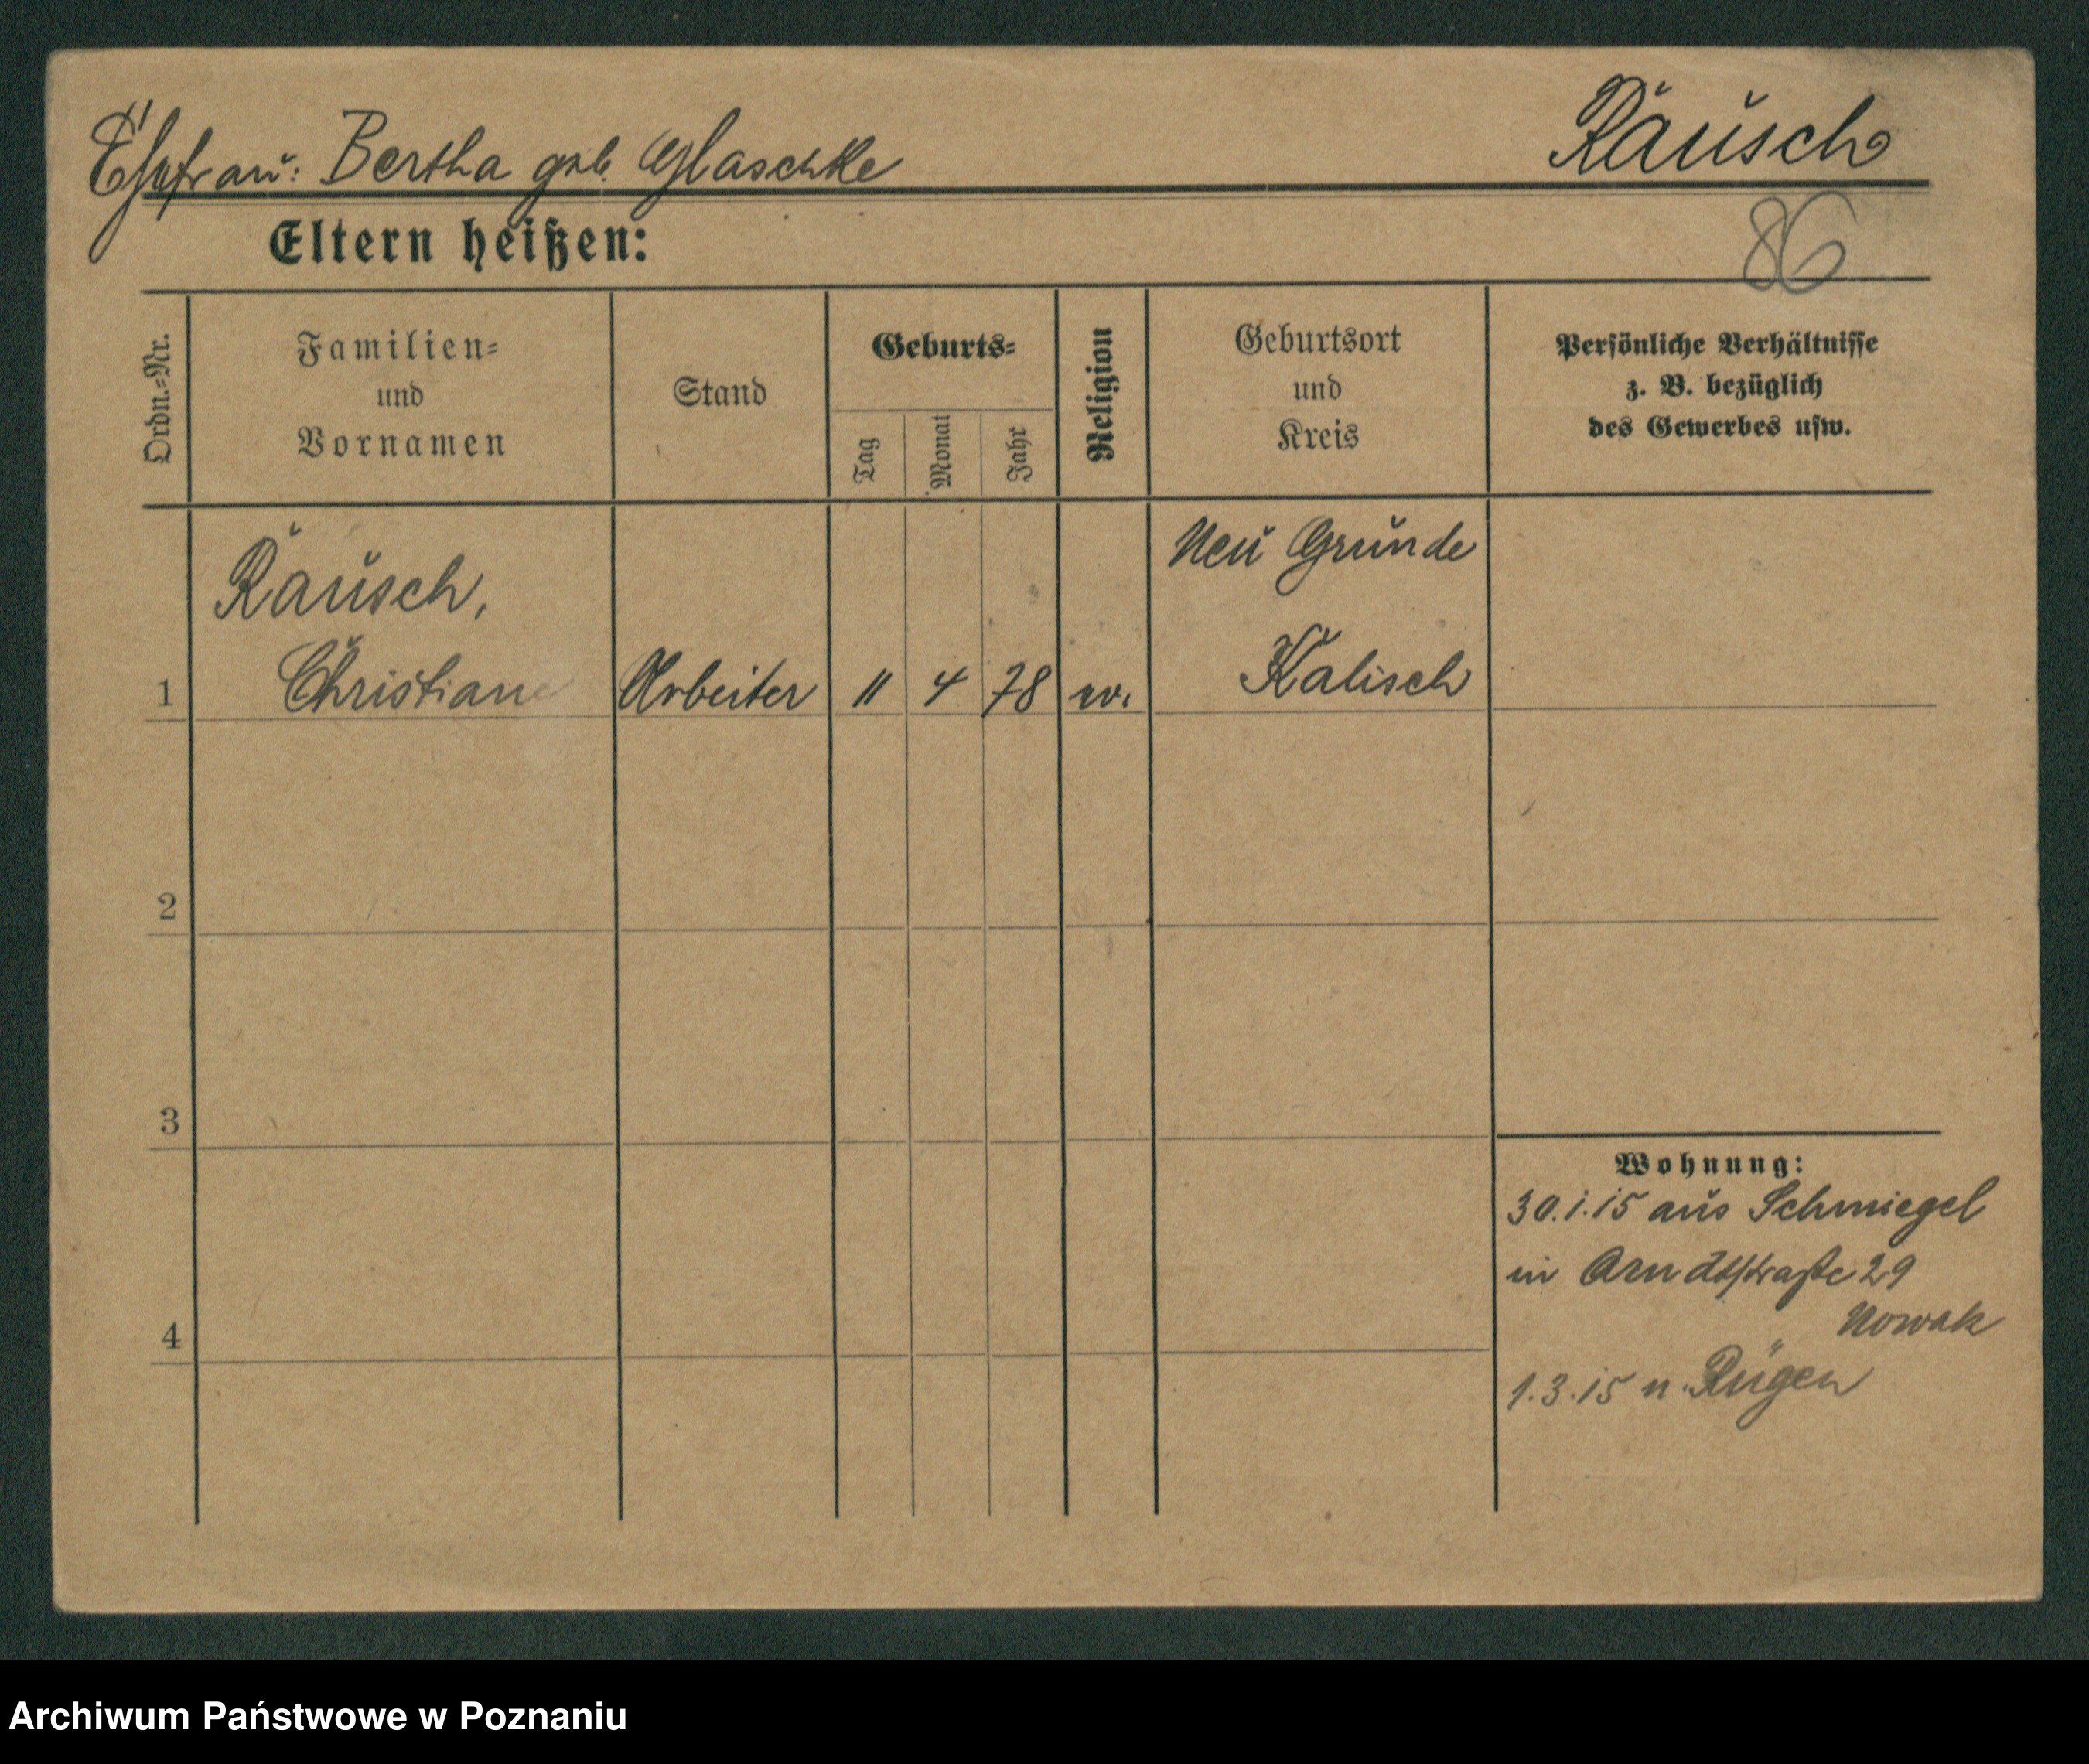 Ehefrau: Bertha geb. Glaschke
Rausch
Eltern heißen:
86
Ordn.-Nr.
Familien-
und
Vornamen
Stand
Geburts-
Tag
Monat
Jahr
Religion
Geburtsort
und
Kreis
Persönliche Verhältnisse
z. B. bezüglich
des Gewerbes usw.
Rausch,
Neu Grunde
1
Christian
Arbeiter
11
4
78
ev.
Kalisch
2
3
4
Wohnung:
30.1.15 aus Schmiegel
in Arndtstraße 29
Nowak
1.3.15 n. Rügen
Archiwum Państwowe w Poznaniu